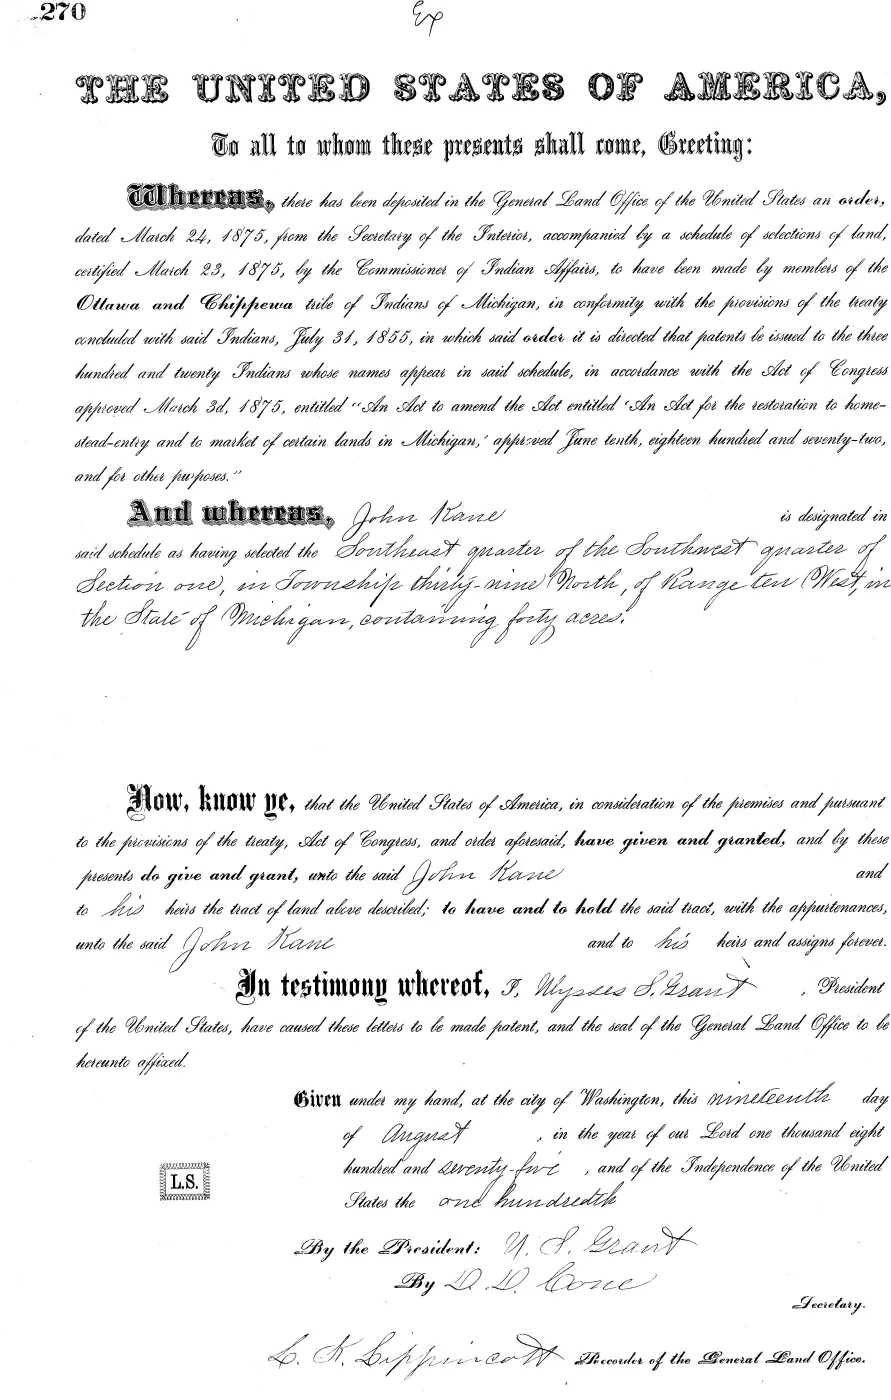 270
Ex
THE UNITED STATES OF AMERICA,
To all to whom these presents shall come, Greeting:
Whereas, there has been deposited in the General Land Office of the United States an order,
dated March 24, 1875, from the Secretary of the Interior, accompanied by a schedule of selections of land,
certified March 23, 1875, by the Commissioner of Indian Affairs, to have been made by members of the
Ottawa and Chippewa tribe of Indians of Michigan, in conformity with the provisions of the treaty
concluded with said Indians, July 31, 1855, in which said order it is directed that patents be issued to the three
hundred and twenty Indians whose names appear in said schedule, in accordance with the Act of Congress
approved March 3d, 1875, entitled "An Act to amend the Act entitled 'An Act for the restoration to home-
stead-entry and to market of certain lands in Michigan,' approved June tenth, eighteen hundred and seventy-two,
and for other purposes."
And whereas, John Kane is designated in
said schedule as having selected the Southeast quarter of the Southwest quarter of
Section one, in Township thirty-nine North, of Range ten West, in
the State of Michigan, containing forty acres.
Now, know ye, that the United States of America, in consideration of the premises and pursuant
to the provisions of the treaty, Act of Congress, and order aforesaid, have given and granted, and by these
presents do give and grant, unto the said John Kane and
to his heirs the tract of land above described; to have and to hold the said tract, with the appurtenances,
unto the said John Kane and to his heirs and assigns forever.
In testimony whereof, I, Ulysses S. Grant, President
of the United States, have caused these letters to be made patent, and the seal of the General Land Office to be
hereunto affixed.
Given under my hand, at the city of Washington, this nineteenth day
of August, in the year of our Lord one thousand eight
hundred and seventy-five, and of the Independence of the United
L.S.
States the one hundredth
By the President: U. S. Grant
By D. D. Cone
Secretary.
L. K. Lippincott Recorder of the General Land Office.